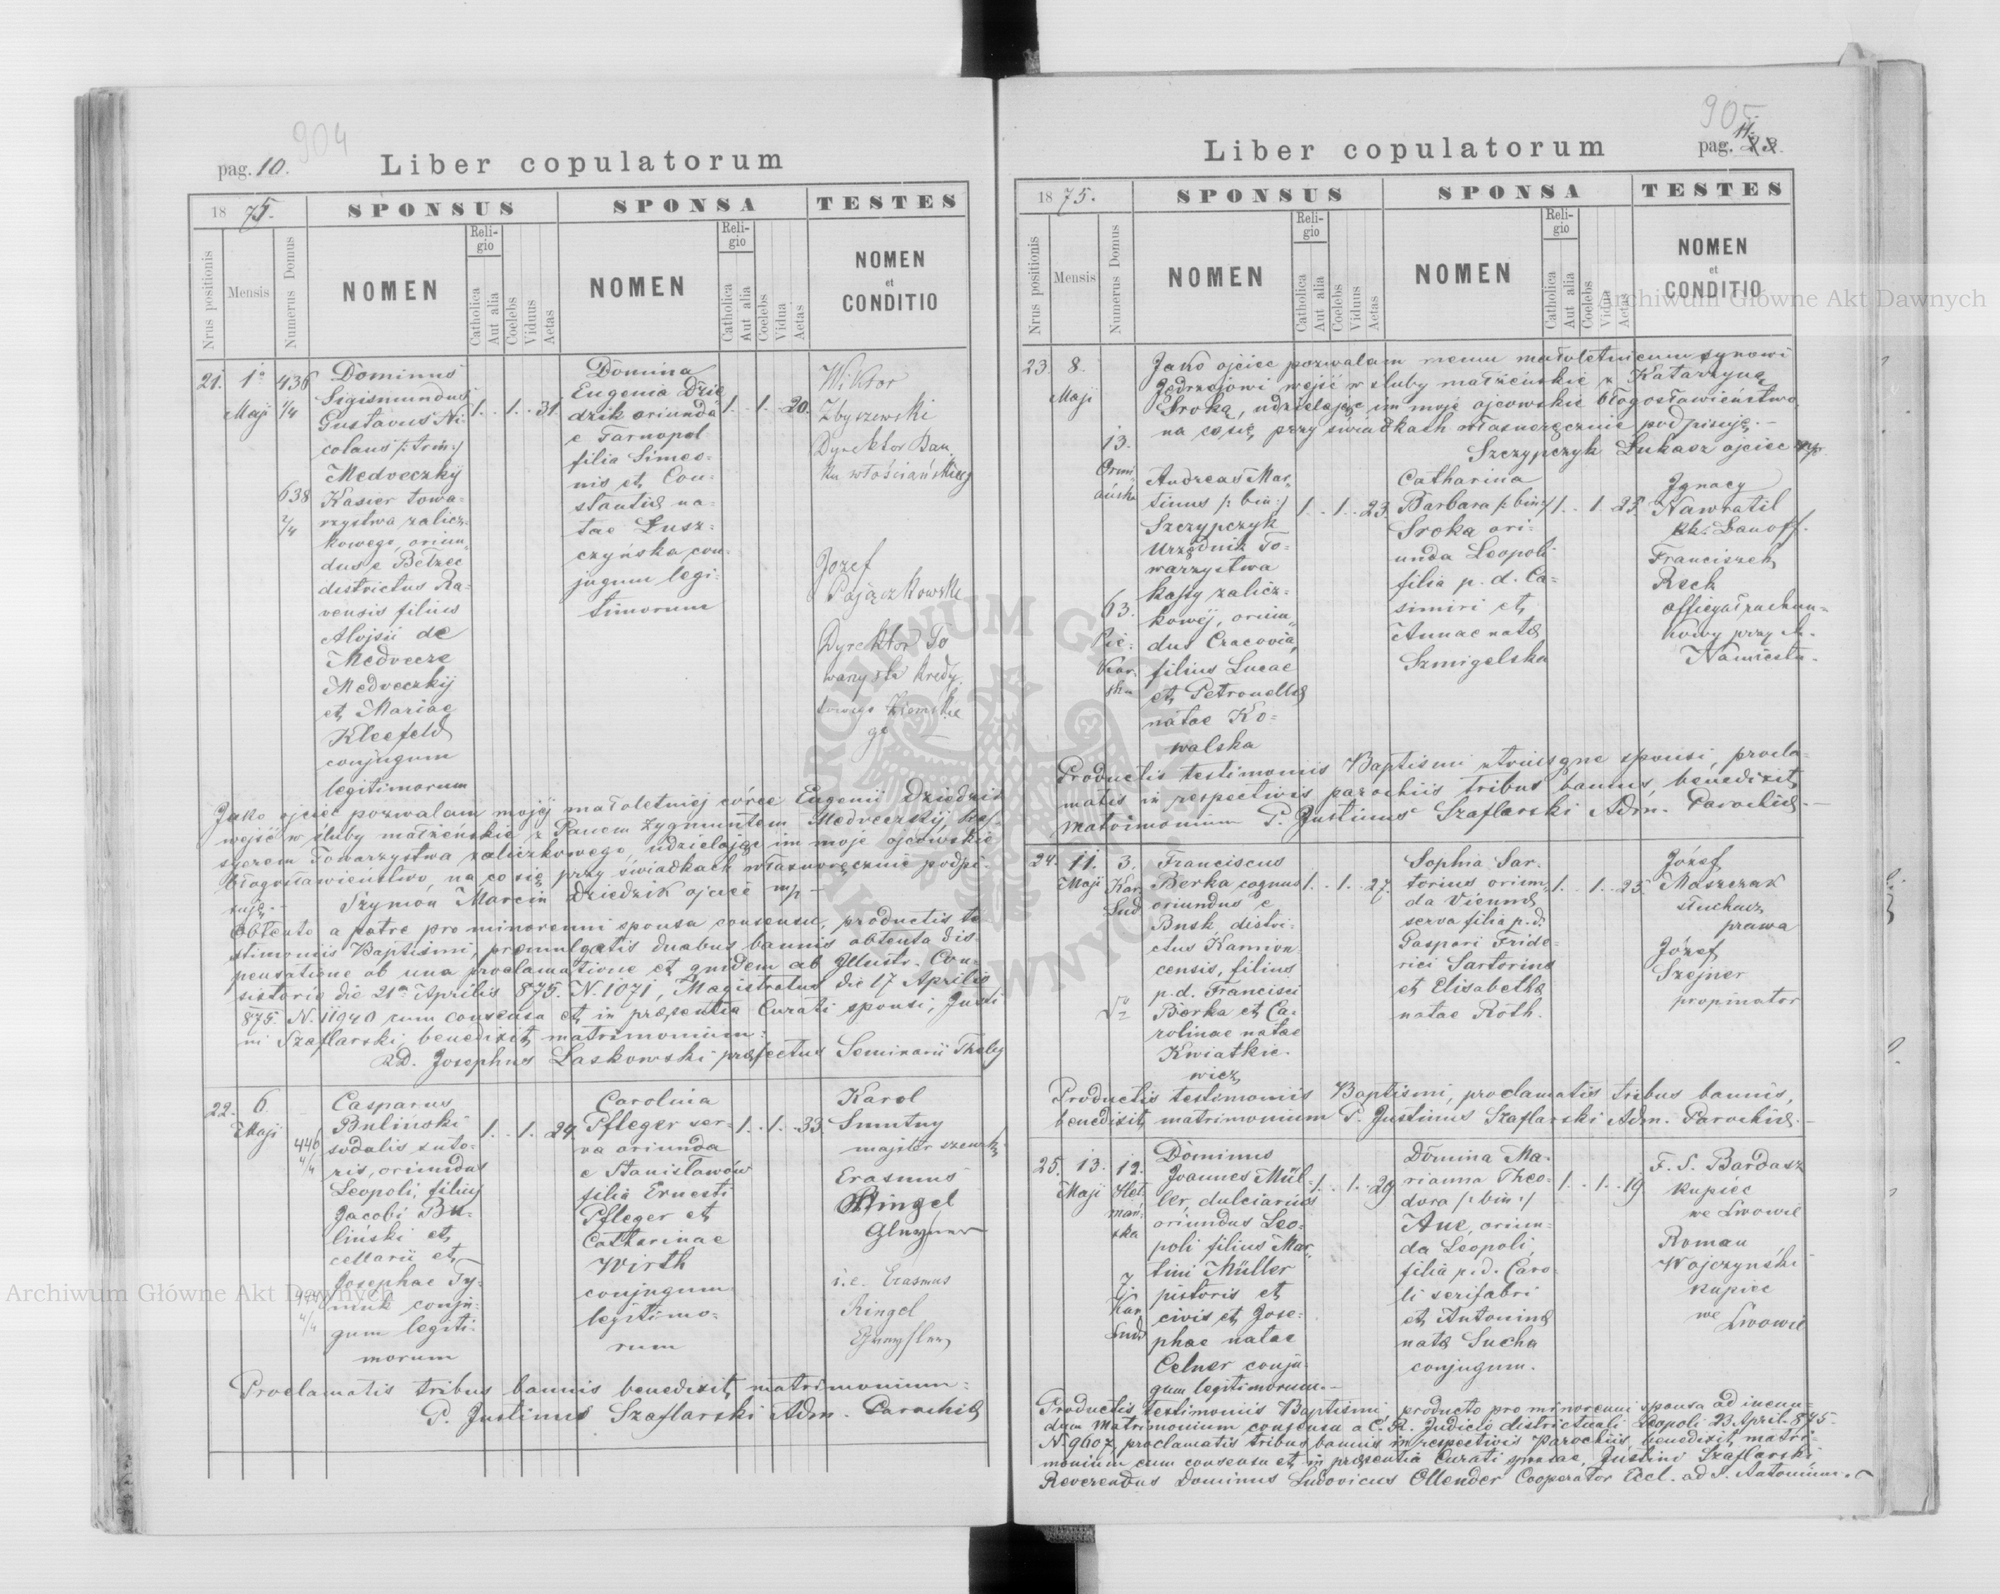 904
pag. 10.
Liber copulatorum
1875.
SPONSUS
SPONSA
TESTES
Nrus positionis
Mensis
Numerus Domus
NOMEN
Religio
Catholica
Aut alia
Coelebs
Viduus
Aetas
NOMEN
Religio
Catholica
Aut alia
Coelebs
Vidua
Aetas
NOMEN
et
CONDITIO
21.
1a
Maji
436
1/4
638
2/4
Dominus
Sigismundus
Gustavus Ni-
colaus /: trin :/
Medveczkÿ
Kasier towa-
rzystwa zalicz-
kowego, oriun-
dus e Bełzec
districtus Ra-
vensis filius
Alojsii de
Medvecze
Medveczkÿ
et Mariae
Kleefeld
conjugum
legitimorum
1. 1. 31.
Domina
Eugenia Dzie-
dzik oriunda
e Tarnopol
filia Simeo-
nis et Con-
stantiae na-
tae Łusz-
czyńska con-
jugum legi-
timorum
1. 1. 20.
Wiktor
Zbyszewski
Dyrektor Ban-
ku włościańskiego
Jozef
Pajączkowski
Dyrektor To
warzystwa kredy
towego Ziemskie
go
Jako ojciec pozwalam mojéj małoletniéj córce Eugenii Dziedzik
wejść w śluby małżeńskie z Panem Zygmuntem Medveczkÿ Ka-
syerem Towarzystwa zaliczkowego, udzielając im moje ojcowskie
błogosławieństwo, na co się przy świadkach własnoręcznie podpi-
suję. — Szymon Marcin Dziedzik ojciec mp —
Obtento a patre pro minorenni sponsa consensu, productis te-
stimoniis Baptismi, promulgatis duabus bannis obtenta dis-
pensatione ab una proclamatione et quidem ab Illustr. Con-
sistorio die 21a Aprilis 875. N. 1071, Magistratus die 17 Aprilis
875. N. 11940 cum consensu et in praesentia Curati sponsi, Justi-
ni Szaflarski, benedixit matrimonium:
RD. Josephus Laskowski praefectus Seminarii Theolog
22.
6.
Maji
446
4/4
Casparus
Buliński
sodalis suto-
ris, oriundus
Leopoli, filius
Jacobi Bu-
liński et
cellarii et
Josephae Ty-
muk conju-
gum legiti-
morum
1. 1. 24.
Carolina
Pfleger ser-
va oriunda
e Stanisławów
filia Ernesti
Pfleger et
Catharinae
Wirth
conjugum
legitimo-
rum
1. 1. 33.
Karol
Smutny
majster szewski
Erasmus
Ringel
i. e. Erasmus
Ringel
Proclamatis tribus bannis benedixit matrimonium:
P. Justinus Szaflarski Adm. Parochiae
905
pag. 11.
Liber copulatorum
1875.
SPONSUS
SPONSA
TESTES
Nrus positionis
Mensis
Numerus Domus
NOMEN
Religio
Catholica
Aut alia
Coelebs
Viduus
Aetas
NOMEN
Religio
Catholica
Aut alia
Coelebs
Vidua
Aetas
NOMEN
et
CONDITIO
23.
8.
Maji
Jako ojciec pozwalam memu małoletniemu synowi
Jędrzejowi wejść w śluby małżeńskie z Katarzyną
Sroką, udzielając im moje ojcowskie błogosławieństwo,
na co się przy świadkach własnoręcznie podpisuję. —
Szczypczyk Łukasz ojciec mp.
13.
Ormi-
ańska
63.
Pie-
kar-
ska
Andreas Mar-
tinus /: bin :/
Szczypczyk
Urzędnik To-
warzystwa
kassy zalicz-
kowéj, oriun-
dus Cracovia,
filius Lucae
et Petronellae
natae Ko-
walska
1. 1. 23.
Catharina
Barbara /: bin :/
Sroka ori-
unda Leopoli
filia p. d. Ca-
simiri et
Annae natae
Szmigelska
1. 1. 25.
Ignacy
Nawratil
Franciszek
Rech
officyał rachun-
kowy przy
Namiestn.
Productis testimoniis Baptismi utriusque sponsi, procla-
matis in respectivis parochiis tribus bannis, benedixit
matrimonium P. Justinus Szaflarski Adm. Parochiae. —
24.
11.
Maji
3.
Kar.
Lud
Franciscus
Berka coquus
oriundus e
Busk distri-
ctus Kamion-
censis, filius
p. d. Francisci
Berka et Ca-
rolinae natae
Kwiatkie-
wicz
1. 1. 27.
Sophia Sar-
torius oriun-
da Viennae
serva filia p. d.
Caspari Fride-
rici Sartorius
et Elisabethae
natae Róth.
1. 1. 25.
Józef
Maszczak
słuchacz
prawa
Józef
Szejner
propinator
Productis testimoniis Baptismi, proclamatis tribus bannis,
benedixit matrimonium P. Justinus Szaflarski Adm. Parochiae. —
25.
13.
Maji
12.
Het-
mań-
ska
7
Kar.
Lud
Dominus
Joannes Mül-
ler, dulciarius
oriundus Leo-
poli filius Mar-
tini Müller
pistoris et
civis et Jose-
phae natae
Celner conju-
gum legitimorum. —
1. 1. 29
Domina Ma-
rianna Theo-
dora /: bin :/
Aue, oriun-
da Leopoli,
filia p. d. Caro-
li serifabri
et Antoninae
natae Sucha
conjugum.
1. 1. 19.
F. S. Bardasz
kupiec
we Lwowie
Roman
Wojczyński
Kupiec
we
Lwowie
Productis testimoniis Baptismi producto pro minorenni sponsa ad ineun-
dum matrimonium consensu a C. R. Judicio districtuali Leopoli 23 April. 875.
N. 9607, proclamatis tribus bannis in respectivis Parochiis, benedixit matri-
monium cum consensu et in praesentia Curati sponsae, Justini Szaflarski,
Reverendus Dominus Ludovicus Ollender Cooperator Eccl. ad S. Antonium. —
Archiwum Główne Akt Dawnych
Archiwum Główne Akt Dawnych
ARCHIWUM GŁÓWNE AKT DAWNYCH